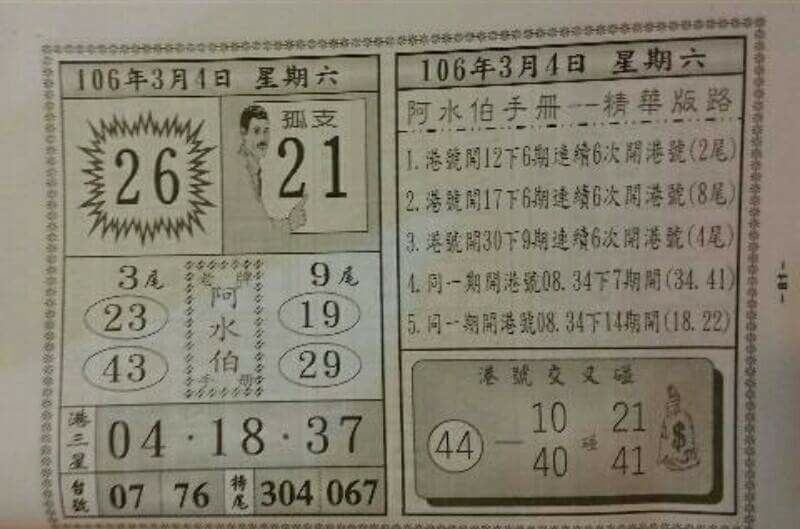 106年3月4日 星期六
26
孤支
21
3尾
9尾
23
19
43
29
老牌
阿水伯
手册
港三星
04·18·37
台號
07
76
特尾
304
067
106年3月4日 星期六
阿水伯手册--精華版路
1.港號開12下6期連續6次開港號(2尾)
2.港號開17下6期連續6次開港號(8尾)
3.港號開30下9期連續6次開港號(4尾)
4.同一期開港號08.34下7期開(34.41)
5.同一期開港號08.34下14期開(18.22)
港號交叉碰
10 21
44 — 碰
40 41
$